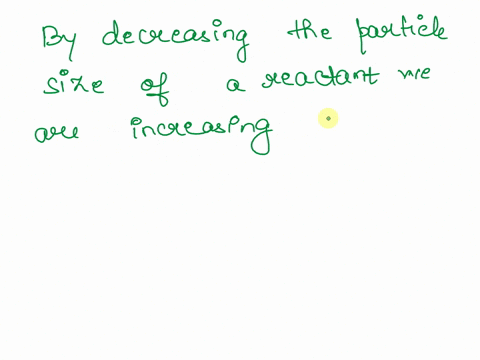 By decreasing the particle
size of a reactant we
are increasing